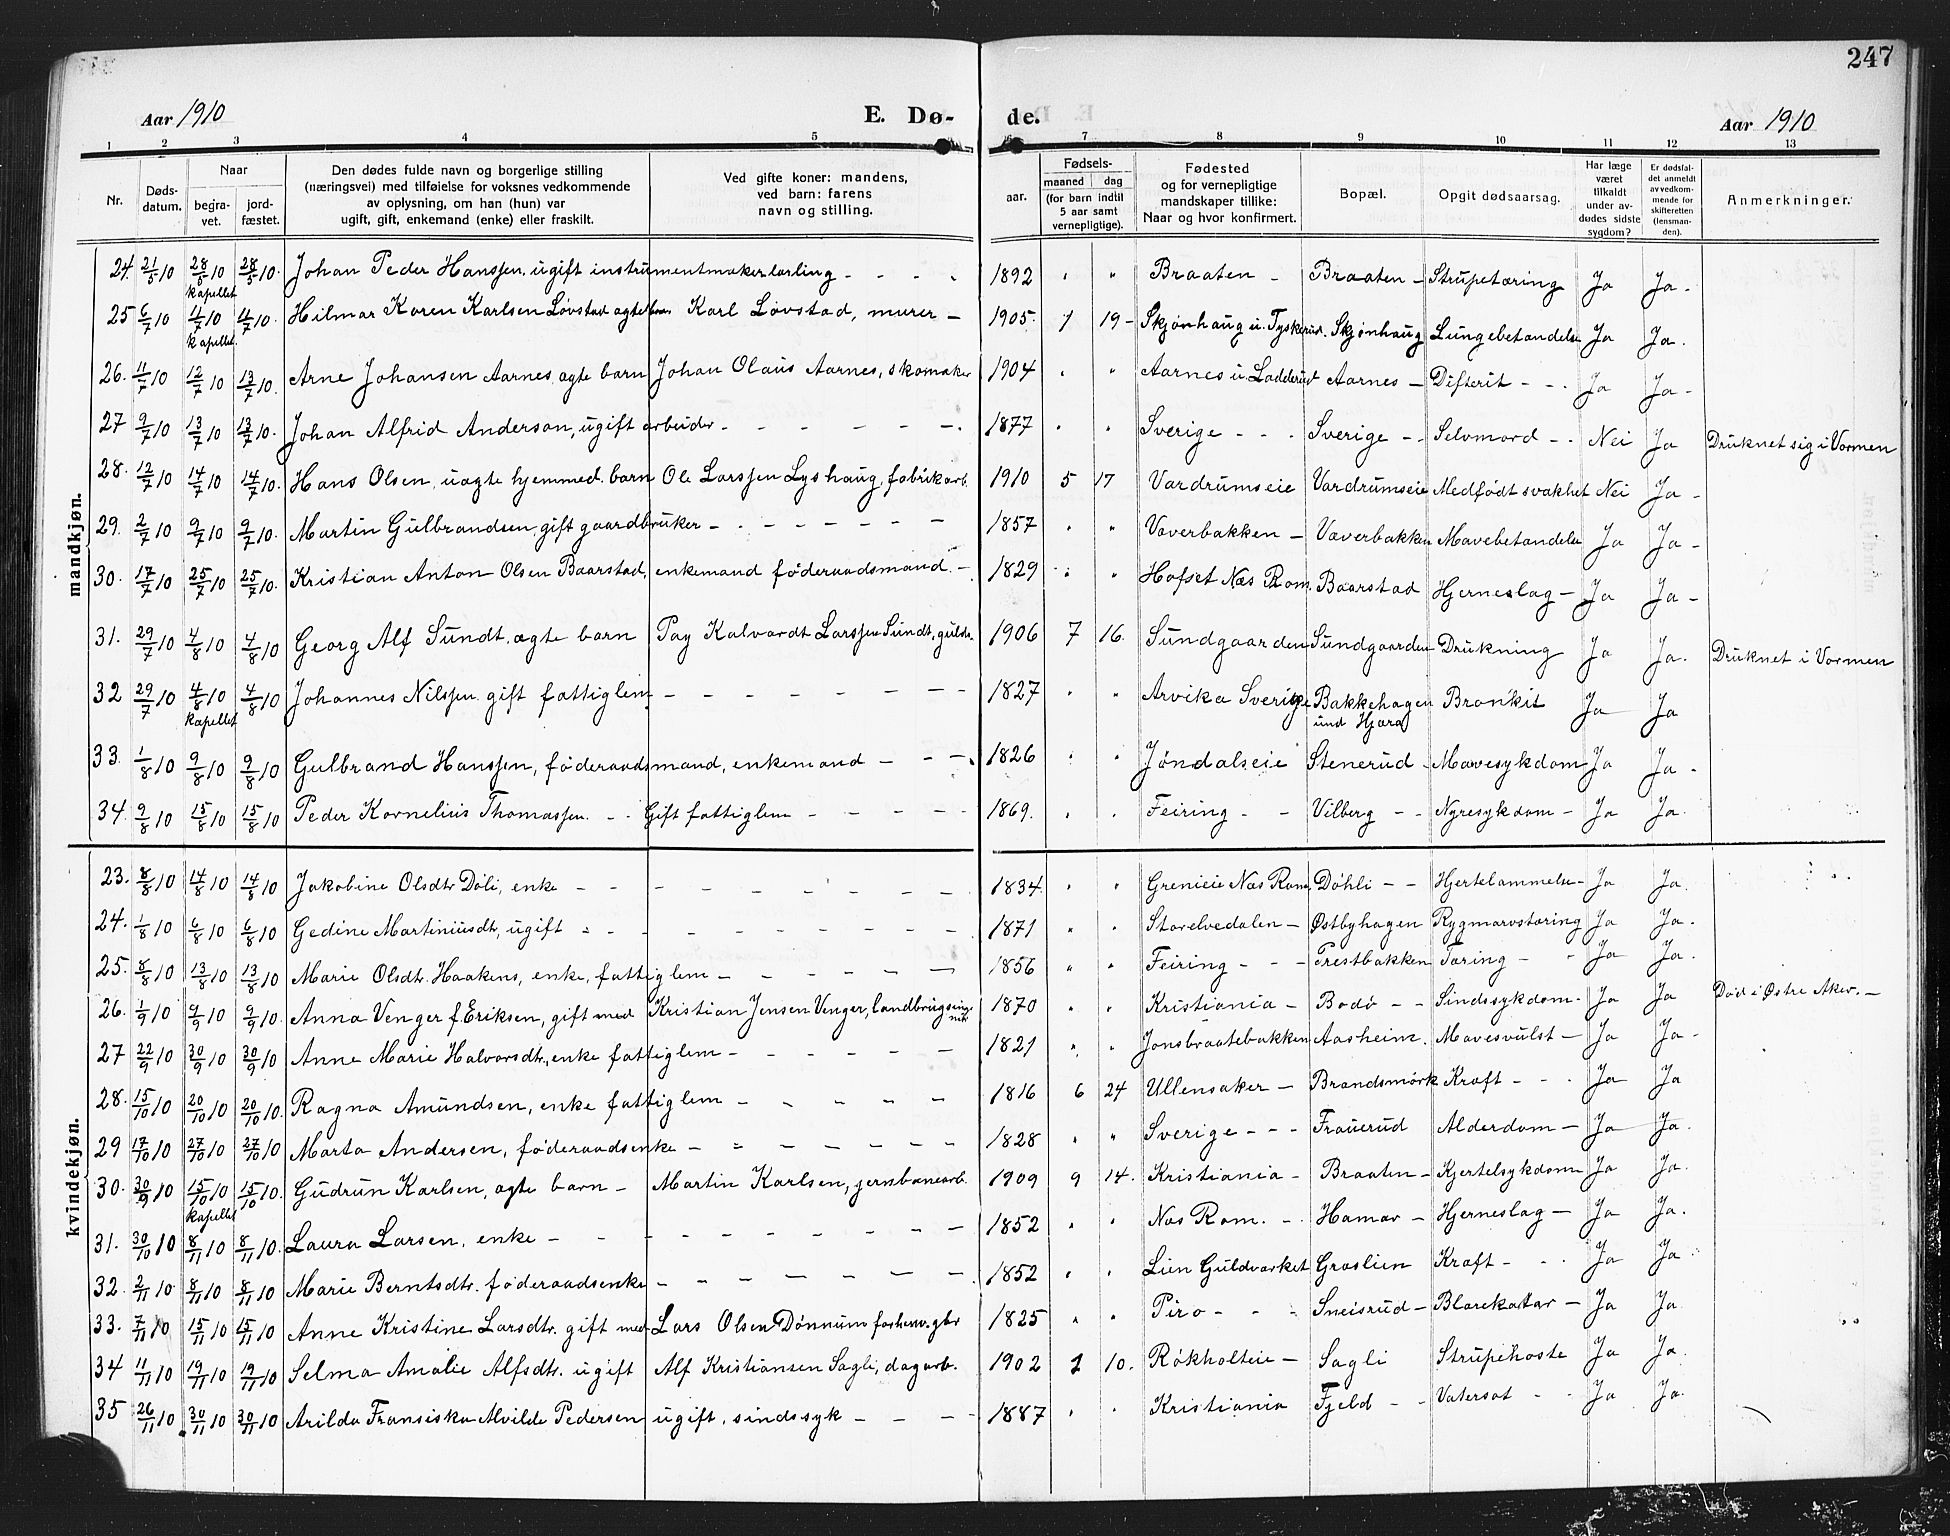 247
Aar 1910 E. Dø- de. Aar 1910
1 2 3 4 5 6 7 8 9 10 11 12 13
Nr. Dødsdatum. Naar begravet. jordfæstet. Den dødes fulde navn og borgerlige stilling (næringsvei) med tilføielse for voksnes vedkommende av oplysning, om han (hun) var ugift, gift, enkemand (enke) eller fraskilt. Ved gifte koner: mandens, ved barn: farens navn og stilling. aar. Fødsels- maaned dag (for barn indtil 5 aar samt vernepligtige). Fødested og for vernepligtige mandskaper tillike: Naar og hvor konfirmert. Bopæl. Opgit dødsaarsag. Har læge været tilkaldt under avdødes sidste sygdom? Er dødsfaldet anmeldt av vedkommende for skifteretten (lensmanden). Anmerkninger.
mandkjøn.
24. 21/5 10 28/5 10 kapellet 28/5 10. Johan Peder Hanssen, ugift instrumentmakerlærling - - - - 1892 " " Braaten - Braaten - Strupetæring Ja Ja -
25 6/7 10 11/7 10 kapellet 11/7 10. Hilmar Karen Karlsen Løvstad ægte barn Karl Løvstad, murer - 1905. 7 19 - Skjønhaug u. Tyskerud. Skjønhaug Lungebetændelse Ja Ja.
26. 11/7 10 12/7 10 13/7 10. Arne Johansen Aarnes, ægte barn Johan Olaus Aarnes, skomaker 1904 " " Aarnes u Ladderud Aarnes - Difterit - - . Ja Ja -
27 9/7 10 13/7 10 13/7 10. Johan Alfrid Anderson, ugift arbeider - - - - - -. 1877 " " Sverige - - - Sverige - - Selvmord - - Nei Ja Druknet sig i Vormen
28. 12/7 10 14/7 10 14/7 10. Hans Olsen, uægte hjemmed. barn Ole Larssen Lyshaug, fabrikarb. 1910 5 17 Vardrumseie Vardrumseie Medfødt svakhet Nei Ja -
29. 2/7 10 9/7 10 9/7 10. Martin Gulbrandsen, gift gaardbruker - - - - - - 1857 " " Væverbakken - Væverbakken Mavebetændelse Ja Ja -
30. 17/7 10 25/7 10 25/7 10. Kristian Anton Olsen Baarstad, enkemand føderaadsmand. - 1829 " " Hofset Næs Rom. Baarstad Hjerneslag - Ja Ja -
31. 29/7 10 4/8 10 4/8 10 Georg Alf Sundt, ægte barn Pay Kalvardt Larssen Sundt, 1906 7 16. Sundgaarden Sundgaarden Drukning Ja Ja. Druknet i Vormen
32 29/7 10 4/8 10 kapellet 4/8 10 Johannes Nilssen gift fattiglem - - - - - - - 1827 " " Arvika Sverige Bakkehagen und Hjera Bronkit Ja Ja
33. 1/8 10 9/8 10 9/8 10 Gulbrand Hanssen, føderaadsmand, enkemand - - -. 1826 " " Jøndalseie Stenerud - Mavesykdom Ja Ja -
34. 9/8 10 15/8 10 15/8 10 Peder Kornelius Thomassen. - - Gift fattiglem - - - - - 1869. " " Feiring - - Vilberg - - Nyresykdom - Ja Ja.
kvindekjøn.
23. 8/8 10 14/8 10 14/8 10 Jakobine Olsdtr Døli, enke - - - - - - - - - 1834. " " Grenieie Næs Rom. Døhli - - Hjertelammelse - Ja Ja.
24. 1/8 10 6/8 10 6/8 10 Gedine Martiniusdtr, ugift - - - - - - - - - 1871 " " Storelvedalen - Østbyhagen Rygmarvstæring Ja Ja.
25. 8/8 10 13/8 10 13/8 10 Marie Olsdtr. Haakens, enke, fattiglem - - - - - - 1856 " " Feiring - - - Prestbakken Tæring - " Ja Ja.
26. 1/9 10 9/9 10 9/9 10. Anna Venger f. Eriksen, gift med Kristian Jensen Venger, landbrugskand. 1870 " " Kristiania - Bodø - - Sindssykdom - Ja Ja Død i Østre Aker. -
27 22/9 10 30/9 10 30/9 10. Anne Marie Halvorsdtr, enke fattiglem - - - - - - 1821 " " Jonsbraatebakken Aasheim. Mavesvulst - Ja Ja -
28. 15/10 10 20/10 10 20/10 10. Ragna Amundsen, enke fattiglem - - - - - 1816 6 24 Ullensaker - Brandsmørk Kræft - - . Ja Ja
29 17/10 10 27/10 10 27/10 10. Marta Andersen, føderaadsenke - - - - - - 1828 " " Sverige - - - Frauerud Alderdom - Ja Ja.
30. 30/9 10 15/10 10 kapellet 15/10 10. Gudrun Karlsen, ægte barn - Martin Karlsen, jernbanearb. 1909 9 14. Kristiania - Braaten - Kjertelsykdom Ja Ja.
31. 30/10 10 8/11 10 8/11 10. Laura Larsen, enke - - - - - - - - - 1852 " " Næs Rom. - . Hamar - Hjerneslag - Ja Ja.
32. 2/11 10 8/11 10 8/11 10 Marie Berntsdtr. føderaadsenke - - - - - - - 1852 " " Lien Guldværket Graslien Kræft - - . Ja Ja
33. 7/11 10 15/11 10 15/11 10 Anne Kristine Larsdtr. gift med Lars Olsen Dønnum forhenv. gbr 1825 " " Piro - - - Sneisrud - Blærekatar - Ja Ja
34 11/11 10 19/11 10 19/11 10 Selma Amalie Alfsdtr. ugift Alf Kristiansen Sagli, dagarb. 1902 1 10. Røkholteie - Sagli Strupehoste Ja Ja.
35 26/11 10 30/11 10 30/11 10 Arilda Fransiska Alvilde Pedersen ugift, sindssyk - - - - 1887 " " Kristiania Fjeld - - Vatersot - - Ja Ja.